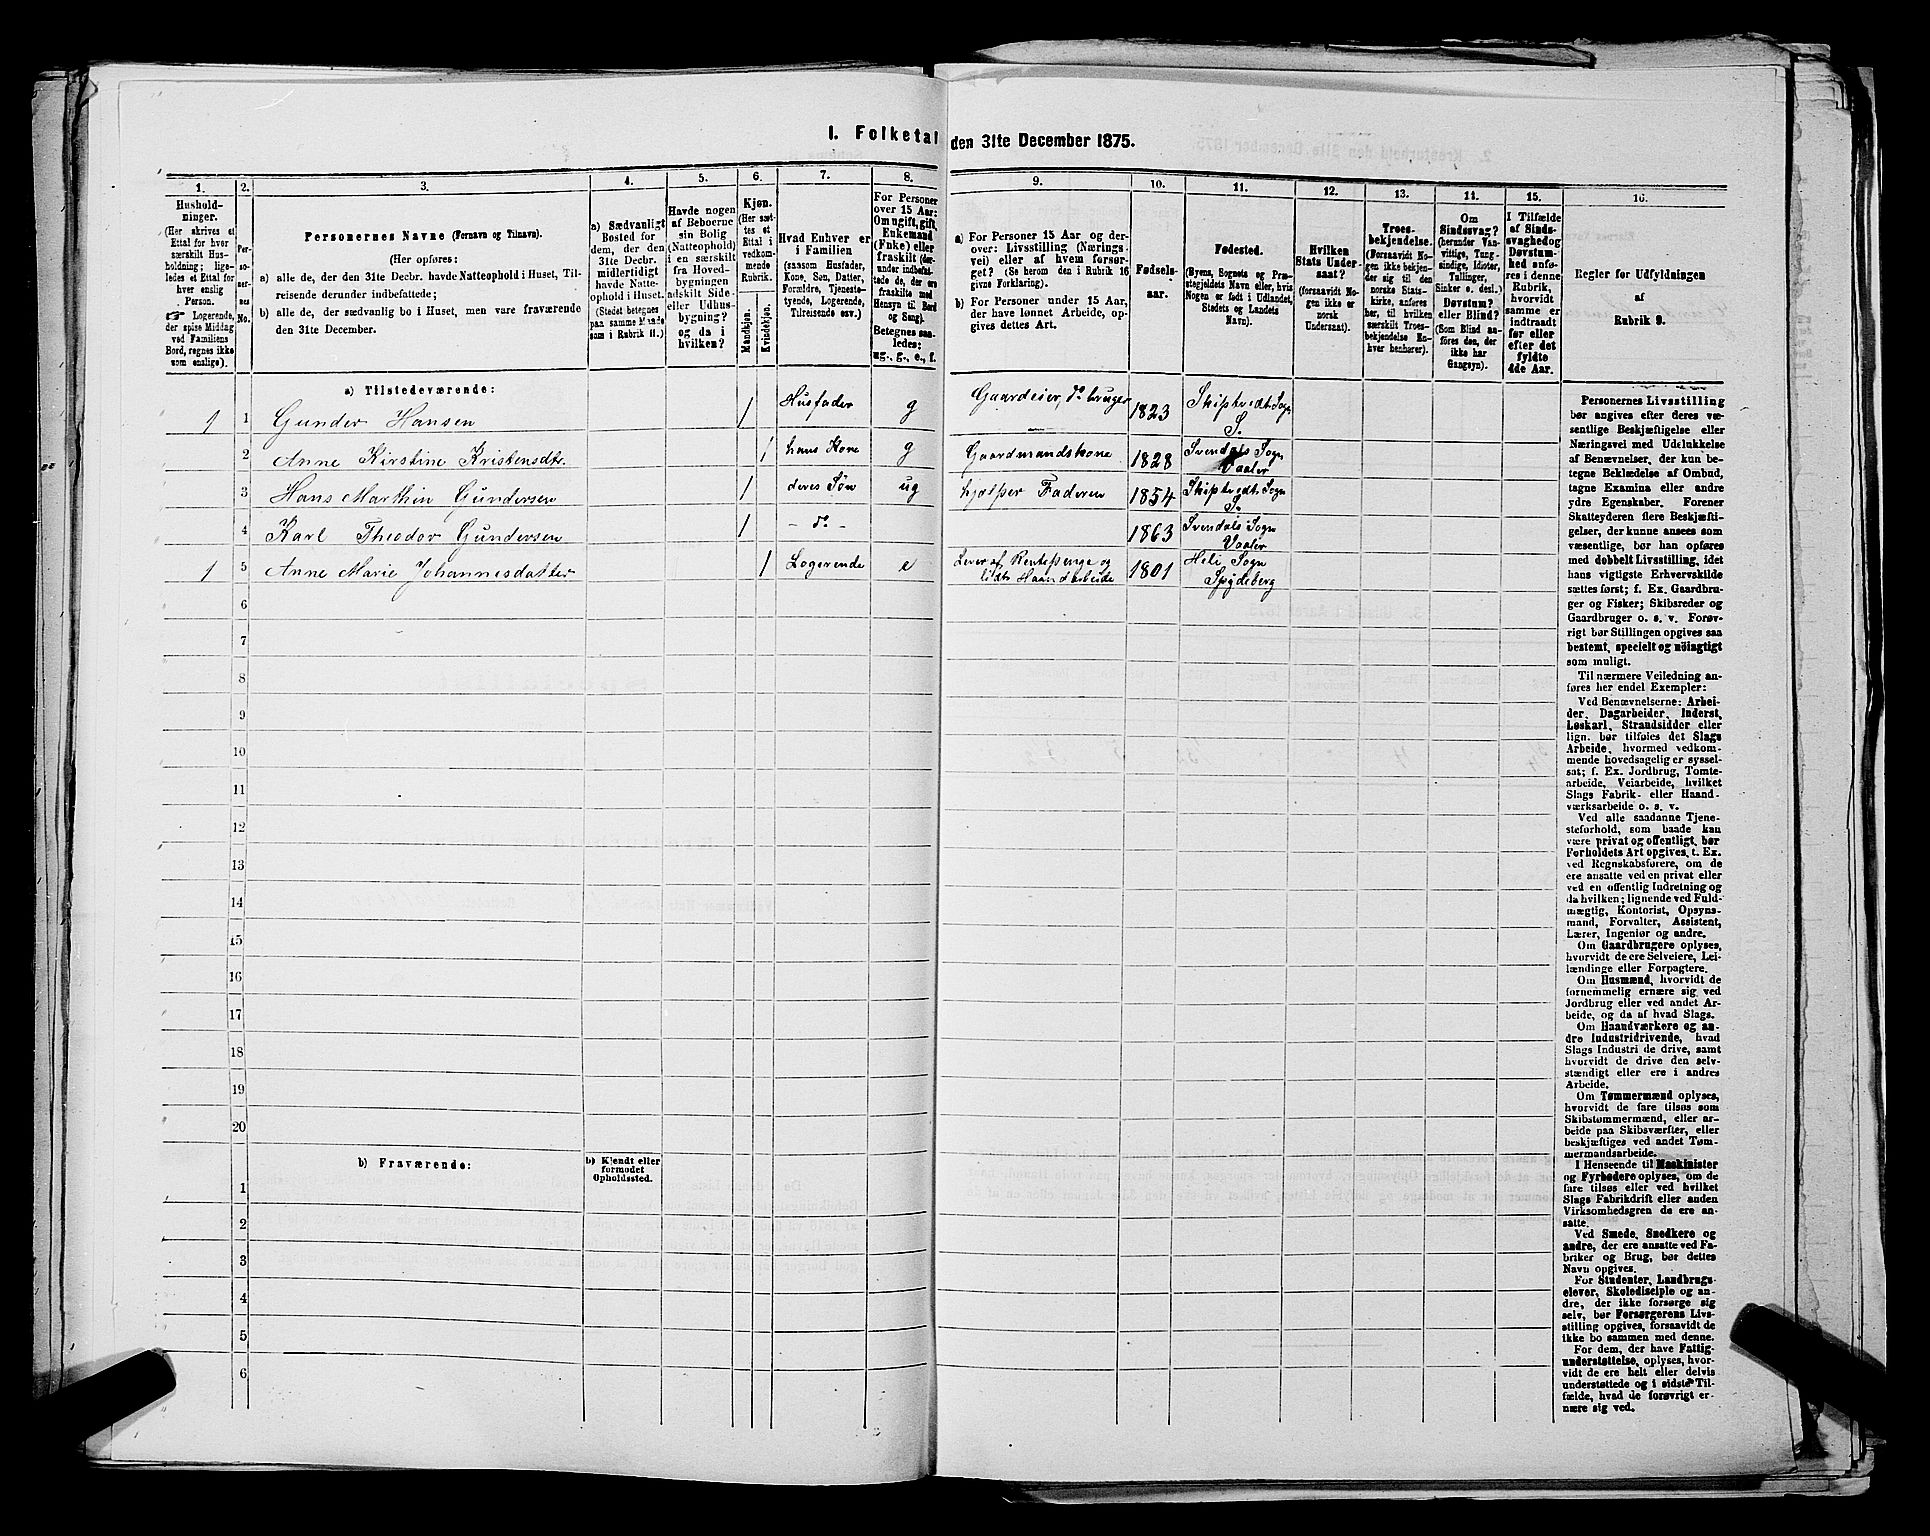 I. Folketal den 31te December 1875.
1. 2. 3. 4. 5. 6. 7. 8. 9. 10. 11. 12. 13. 14. 15. 16.
Hushold-
ninger.
(Her skrives et
Ettal for hver
særskilt Hus-
holdning; lige-
ledes et Ettal for
hver enslig
Person.
☞ Logerende,
der spise Middag
ved Familiens
Bord, regnes ikke
som enslige).
Per-
soner-
nes
No.
Personernes Navne (Fornavn og Tilnavn).
(Her opføres:
a) alle de, der den 31te Decbr. havde Natteophold i Huset, Til-
reisende derunder indbefattede;
b) alle de, der sædvanlig bo i Huset, men vare fraværende
den 31te December.
a) Sædvanligt
Bosted for
dem, der den
31te Decbr.
midlertidigt
havde Natte-
ophold i Huset.
(Stedet betegnes
paa samme Maade
som i Rubrik 11.)
Havde nogen
af Beboerne
sin Bolig
(Natteophold)
i en særskilt
fra Hoved-
bygningen
adskilt Side-
eller Udhus-
bygning?
og da i
hvilken?
Kjøn.
(Her sæt-
tes et
Ettal i
vedkom-
mende
Rubrik.
Mandkjøn.
Kvindekjøn.
Hvad Enhver er
i Familien
(saasom Husfader,
Kone, Søn, Datter,
Forældre, Tjeneste-
tyende, Logerende,
Tilreisende osv.)
For Personer
over 15 Aar:
Om ugift, gift,
Enkemand
(Enke) eller
fraskilt (der-
under indbefat-
tede de, der ere
fraskilte med
Hensyn til Bord
og Sæng).
Betegnes saa-
ledes:
ug., g., e., f.
a) For Personer 15 Aar og der-
over: Livsstilling (Nærings-
vei) eller af hvem forsør-
get? (Se herom den i Rubrik 16
givne Forklaring).
b) For Personer under 15 Aar,
der have lønnet Arbeide, op-
gives dettes Art.
Fødsels-
aar.
Fødested.
(Byens, Sognets og Præ-
stegjeldets Navn eller, hvis
Nogen er født i Udlandet,
Stedets og Landets
Navn).
Hvilken
Stats Under-
saat?
(forsaavidt No-
gen ikke er
norsk
Undersaat).
Troes-
bekjendelse.
(Forsaavidt No-
gen ikke bekjen-
der sig til den
norske Stats-
kirke, anføres
her, til hvilken
særskilt Troes-
bekjendelse En-
hver henhører).
Om
Sindssvag?
(herunder Van-
vittige, Tung-
sindige, Idioter,
Tullinger,
Sinker o. desl.)
Døvstum?
eller Blind?
(Som Blind an-
føres den, der
ikke har
Gangsyn).
I Tilfælde
af Sinds-
svaghed og
Døvstum-
hed anfø-
res i denne
Rubrik,
hvorvidt
samme er
indtraadt
før eller
efter det
fyldte
4de Aar.
Regler før Udfyldningen
af
Rubrik 9.
a) Tilstedeværende:
1 1 Gunder Hansen 1 Husfader g Gaardeier, do bruger 1823 Skiptvedt Sogn
S.
2 Anne Kirstine Kristensdtr. 1 hans Kone g Gaardmandskone 1828 Svendals Sogn
Vaaler
3 Hans Marthin Gundersen 1 deres Søn ug hjelper Faderen 1854 Skiptvedt Sogn
S.
4 Karl Theodor Gundersen 1 - do - 1863 Svendals Sogn
Vaaler
1 5 Anne Marie Johannesdatter 1 Logerende e Lever af Rentepenge og 1801 Heli Sogn
lidt Haandarbeide Spydeberg
6
7
8
9
10
11
12
13
14
15
16
17
18
19
20
b) Fraværende:
b) Kjendt eller
formodet
Opholdssted.
1
2
3
4
5
6
Personernes Livsstilling
bør angives efter deres væ-
sentlige Beskjæftigelse eller
Næringsvei med Udelukkelse
af Benævnelser, der kun be-
tegne Beklædelse af Ombud,
tagne Examina eller andre
ydre Egenskaber. Forener
Skatteyderen flere Beskjæfti-
gelser, der kunne ansees som
væsentlige, bør han opføres
med dobbelt Livsstilling, idet
hans vigtigste Erhvervskilde
sættes først; f. Ex. Gaardbru-
ger og Fisker; Skibsreder og
Gaardbruger o. s. v. Forøv-
rigt bør Stillingen opgives saa
bestemt, specielt og nöiagtigt
som muligt.
Til nærmere Veiledning an-
føres her endel Exempler:
Ved Benævnelserne: Arbei-
der, Dagarbeider, Inderst,
Løskarl, Strandsidder eller
lign. bør tilføies det Slags
Arbeide, hvormed vedkom-
mende hovedsagelig er syssel-
sat; f. Ex. Jordbrug, Tomte-
arbeide, Veiarbeide, hvilket
Slags Fabrik- eller Haand-
værksarbeide o. s. v.
Ved alle saadanne Tjene-
steforhold, som baade kan
være privat og offentligt, bør
Forholdets Art opgives, t. Ex.
ved Regnskabsførere, om de
ere ansatte ved en privat eller
ved en offentlig Indretning og
da hvilken; lignende ved Fuld-
mægtig, Kontorist, Opsyns-
mand, Forvalter, Assistent,
Lærer, Ingeniør og andre.
Om Gaardbrugere oplyses,
hvorvidt de ere Selveiere, Lei-
lændinge eller Forpagtere.
Om Husmænd, hvorvidt de
fornemmelig ernære sig ved
Jordbrug eller ved andet Ar-
beide, og da af hvad Slags.
Om Haandværkere og an-
dre Industridrivende, hvad
Slags Industri de drive, samt
hvorvidt de drive den selv-
stændigt eller ere i andres
Arbeide.
Om Tømmermænd oplyses,
hvorvidt de fare tilsøs som
Skibstømmermænd, eller ar-
beide paa Skibsværfter, eller
beskjæftiges ved andet Tøm-
mermandsarbeide.
I Henseende til Maskinister
og Fyrbødere oplyses, om de
fare tilsøs eller ved hvilket
Slags Fabrikdrift eller anden
Virksomhedsgren de ere an-
satte.
Ved Smede, Snedkere og
andre, der ere ansatte ved Fa-
briker og Brug, bør dettes
Navn opgives.
For Studenter, Landbrugs-
elever, Skoledisciple og an-
dre, der ikke forsørge sig
selv, bør Forsørgerens Livs-
stilling opgives, forsaavidt de
ikke bo sammen med denne.
For dem, der have Fattig-
understøttelse, oplyses, hvor-
vidt de ere helt eller delvis
understøttede og i sidste Til-
fælde, hvad de forøvrigt er-
nære sig ved.